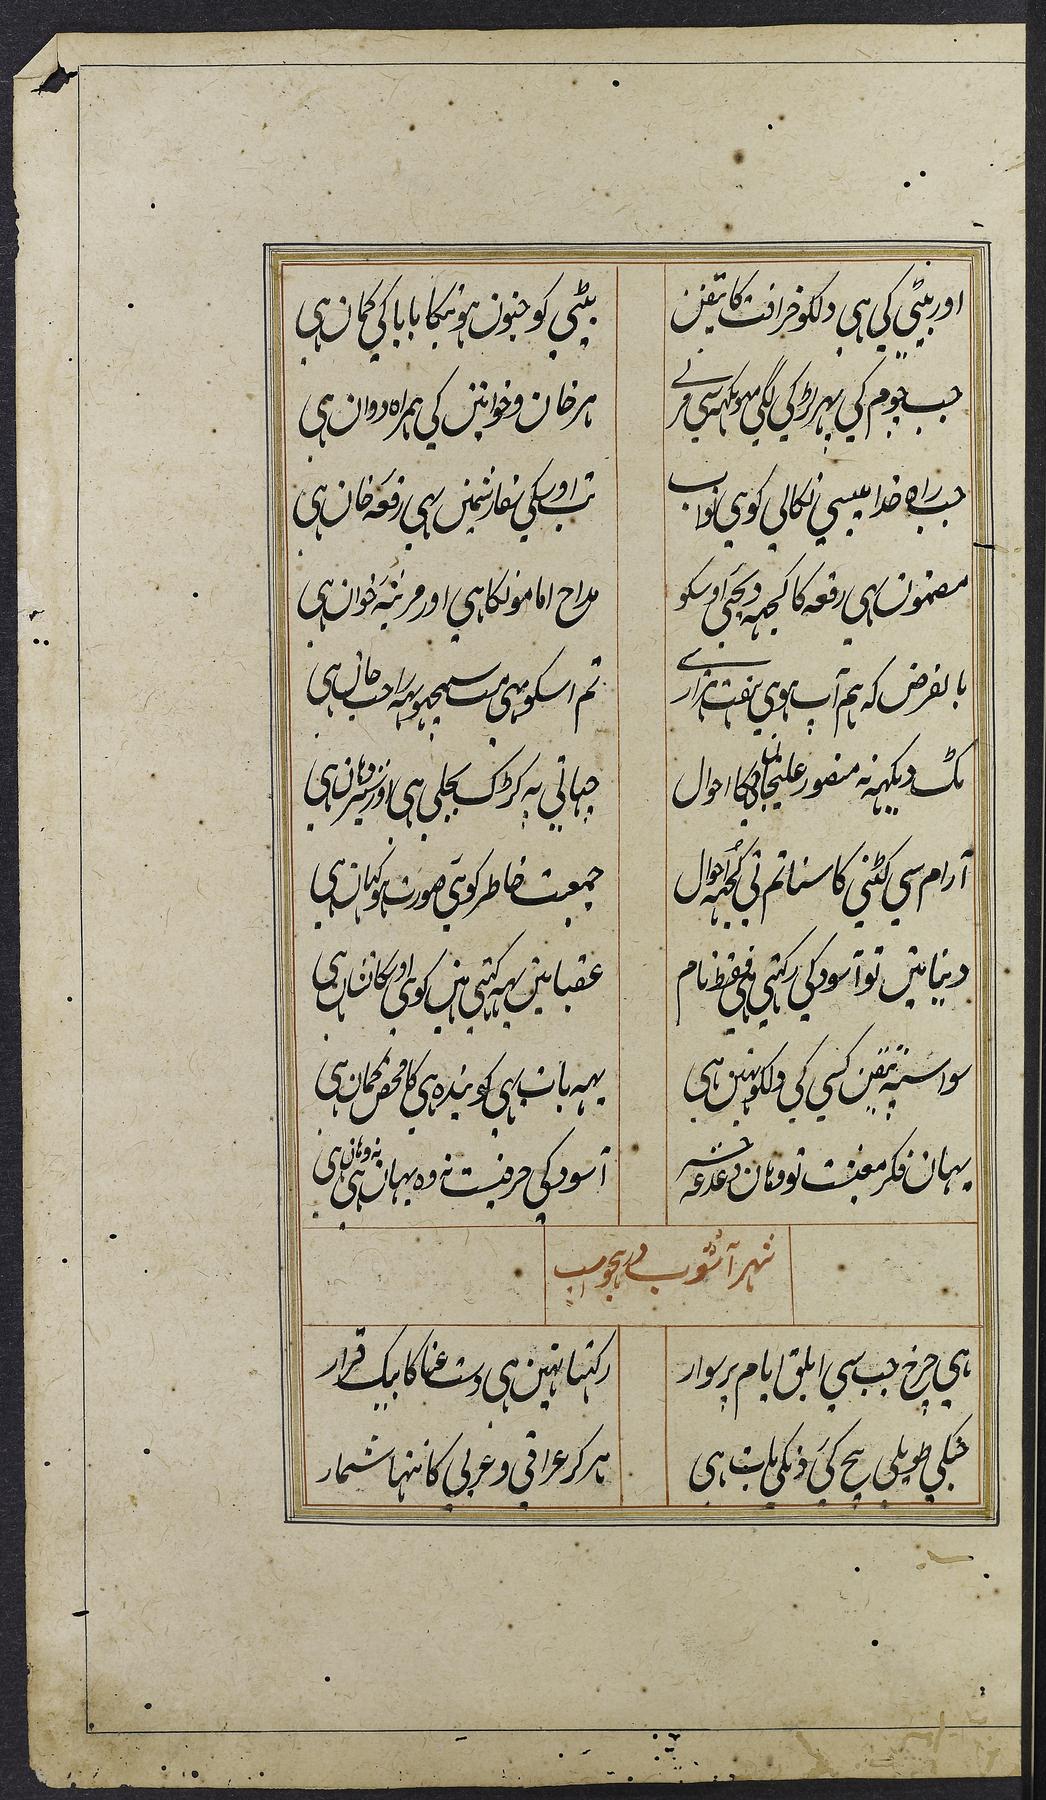 اور بیٹی کی ہی دلکو خرافت کا تیقن بیٹی کو جنون ہونیکا بابا کی گمان ہی
جب چوم کی پہر لڑکی لگی بہوکہہ سی مرنے ہر خان و خوانین کی ہمراہ دوان ہی
جب راہ خدا پیسی نکالی کوئی نواب تب اوسکی سفارشمین بہی رقعہ خان ہی
مضمون بہی رقعہ کا کجہہ دیجئی اوسکو مداح امامونکا ہی اور مرثیہ خوان ہی
بالفرض کہ ہم آپ ہوئی ہفت ہزاری تم اسکو بہی مت سمجہو یہہ راحت جان ہی
ٹک دیکہہ نہ منصور علیخان کا احوال چہاتی پہ کڑک بجلی ہی اور شیر دہان ہی
آرام سی کٹنی کا سنا تم نی کجہہ احوال جمعیت خاطر کوئی صورت ہو کہان ہی
دنیا مین تو آسودکی رکہتی ہی فقط نام عقبا مین یہہ کہتی ہین کوئی اوسکا نشان ہی
سو اسپہ تیقن کسی کی دلکو نہین ہی یہہ بات بہی کوئندہ ہی کا محض گمان ہی
یہان فکر معیشت تو وہان دغدغہ حشر آسودکی حرفیست نہ وہ یہان ہی نہ وہان ہی
شہر آشوب در ہجو اسپ
ہی چرخ جب سی ابلق ایام پر سوار رکہتا نہین ہی دست عنا کا بیک قرار
جنکی طویلی بیچ کئی دنکی بات ہی ہرگز عراقی و عربی کا نتہا شمار